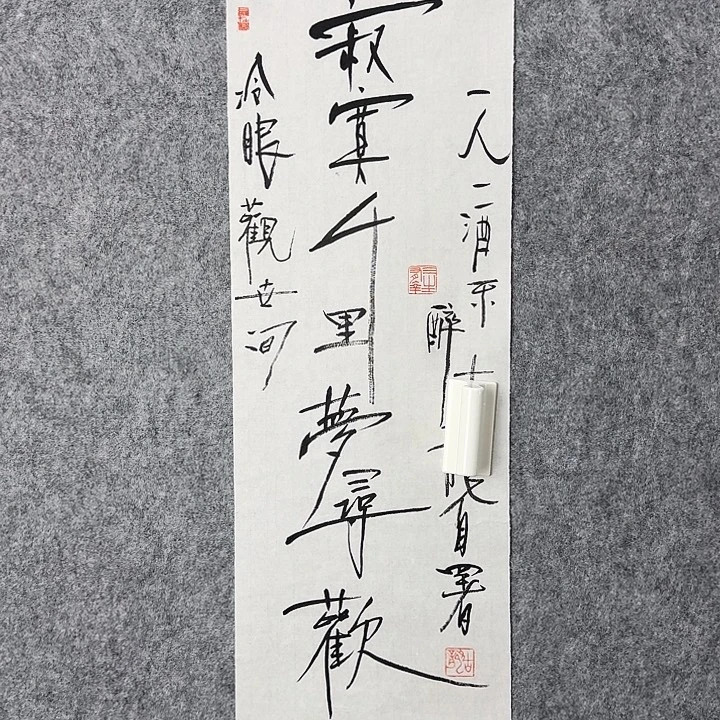 一人二酒不醉
自署
寂寞千里夢尋歡
冷眼觀世间